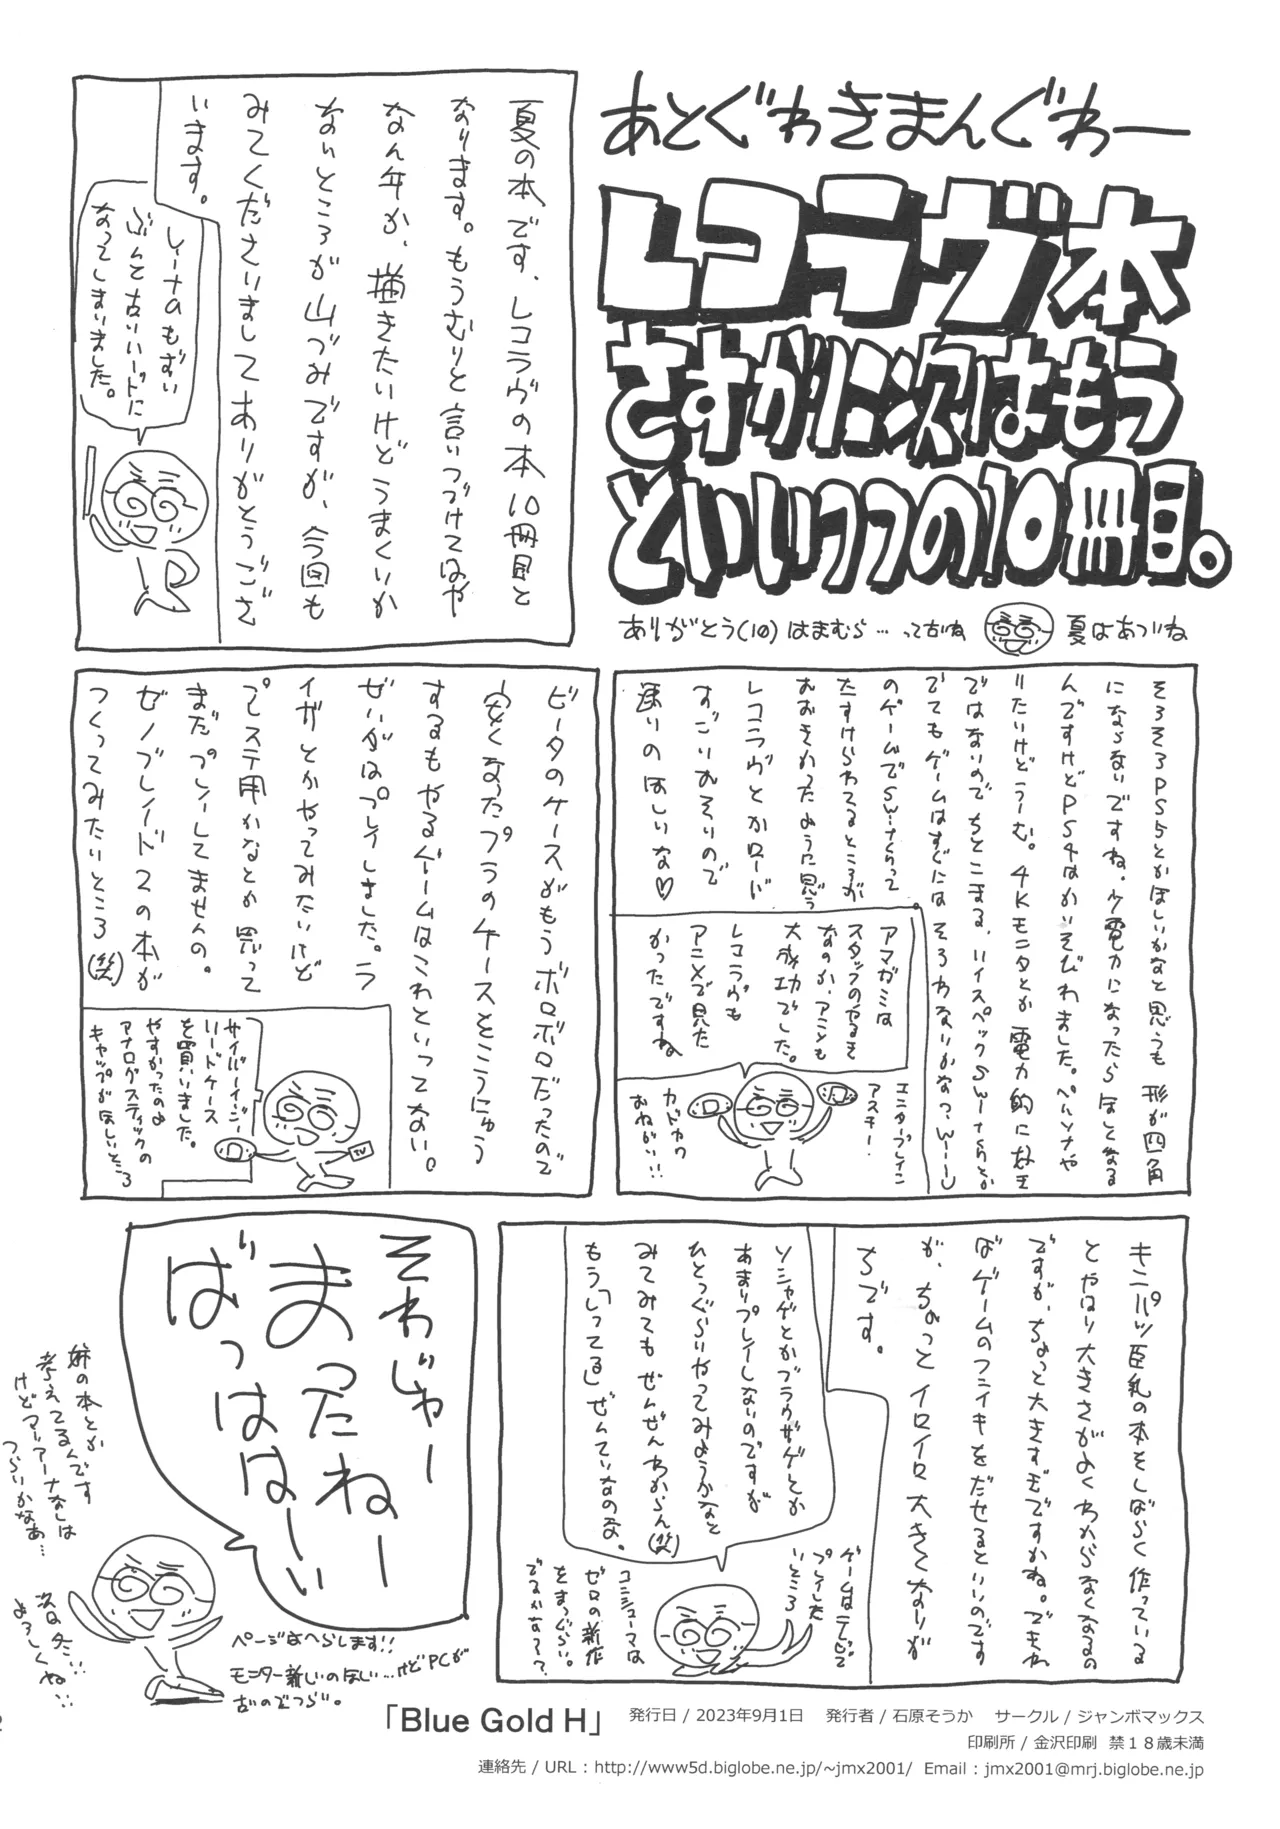 あとぐわきまんぐわー
レコラヴ本
さすがに次はもう
といいつつの10冊目。
ありがとう(10) はまむら…って古いね
夏はあついね
夏の本です、レコラヴの本10冊目と
なります。もうむりと言いつづけてはや
なん年か、描きたいけどうまくいか
ないところが山づみですが、今回も
みてくださいましてありがとうござ
います。
レーナのもずい
ぶんと古いハードに
なってしまいました。
そろそろPS5とかほしいかなと思うも 形が四角
にならないですね。少電力になったらほしくなる
んですけどPS4はかいそびれました。ペルソナや
りたいけどうーむ。4Kモニタとか電力的にむき
ではないのでちとこまる、ハイスペックSwitchとか
でてもゲームはすぐには そろわないかなっ、
のゲームでSwitchって
たすけられてるところが
おおきかったように思う
レコラヴとかロード
すごいおそいので
速いのほしいな♡
アマガミは
スタッフのやるき
なのか、アニメも
大成功でした。
レコラヴも
アニメで見た
かったですね
エンターブレイン
アスキー…
カドカワ
おねがい!!
ビータのケースがもうボロボロだったので
安くなったプラのケースをこうにゅう
するもやるゲームはこれといってない。
ぜいがはプレイしました。ラ
イザとかやってみたいけど
プレステ用かなとか思って
まだプレーしてませんの。
ゼノブレイド2の本が
つくってみたいところ(笑)
サイバーイージー
ハードケース
を買いました。
やすかったのよ
アナログスティックの
キャップがほしいところ
キンパツ巨乳の本をしばらく作っている
とやはり大きさがよくわからなくなるの
ですが、ちょっと大きすぎですかね。でもわ
ばゲームのフンイキをだせるといいのです
が、ちょっとイロイロ大きくなりが
ちです。
ソシャゲとかブラウザゲとか
あまりプレイしないのですが
ひとつぐらいやってみようかなと
みてみてもぜんぜんわからん(笑)
もう「いってる」ぜんていなのな。
ゲームはテレビで
プレイしたい
ところ
コンシューマは
ゼロの新作
をまつぐらい。
でるかなぁ??
それじゃー
まったねー
ばっははーい
妹の本とか
考えてるんです
けどマリアーナなしは
つらいかなぁ…
次は冬!!
よろしくね!!
ページはへらします!!
モニター新しいのほしい…けどPCが
古いのでつらい。
「Blue Gold H」
発行日 / 2023年9月1日 発行者 / 石原そうか サークル / ジャンボマックス
印刷所 / 金沢印刷 禁１８歳未満
連絡先 / URL：http://www5d.biglobe.ne.jp/~jmx2001/ Email：jmx2001@mrj.biglobe.ne.jp